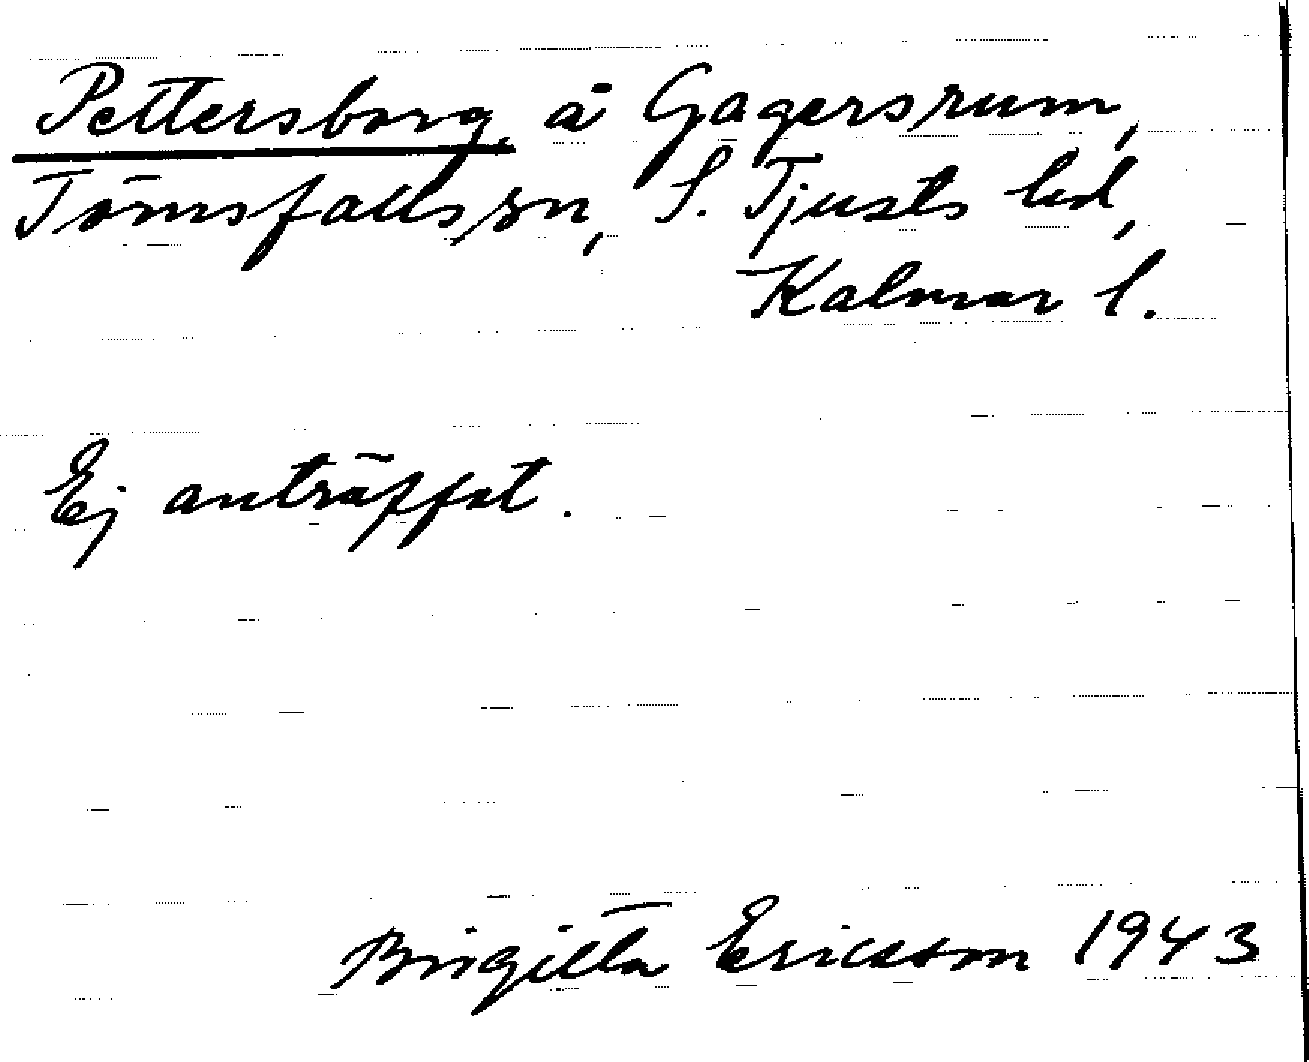 Pettersborg, å Gagersrum,
Törnsfalls sn, S. Tjusts hd,
Kalmar l.
Ej anträffat.
Birgitta Ericsson 1943